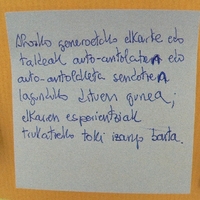 Ahozko generoetako elkarte edo
taldeak auto-antolatzen edo
auto-antolaketa sendotzen
lagunduko dituen gunea;
elkarren esperientziak
trukatzeko toki izango bata.